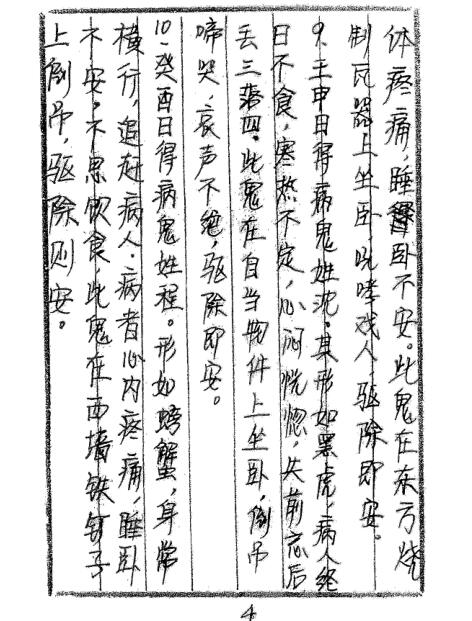 体疼痛，睡卧不安。此鬼在东方烧
制瓦器上坐卧，咣哮戏人，驱除即安。
9、壬申日得病鬼姓沈。其形如黑虎，病人终
日不食，寒热不定，心闷恍惚，失前忘后
丢三落四。此鬼在自当物件上坐卧，倒吊
啼哭，哀声不绝，驱除即安。
10、癸酉日得病鬼姓程。形如螃蟹，身常
横行，追赶病人。病者心内疼痛，睡卧
不安，不思饮食，此鬼在西墙铁钉子
上倒吊，驱除则安。
4